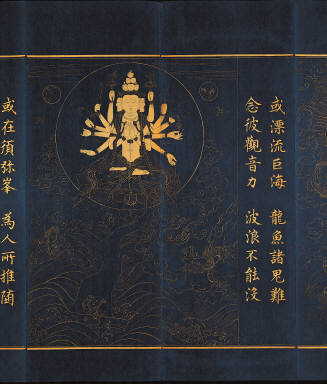 或漂流巨海　龍魚諸鬼難
念彼觀音力　波浪不能沒
或在須弥峯　為人所推墮